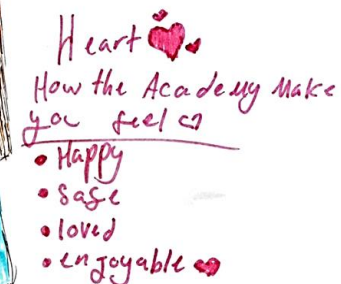 Heart
How the Academy Make
you feel
• Happy
• Safe
• loved
• enjoyable